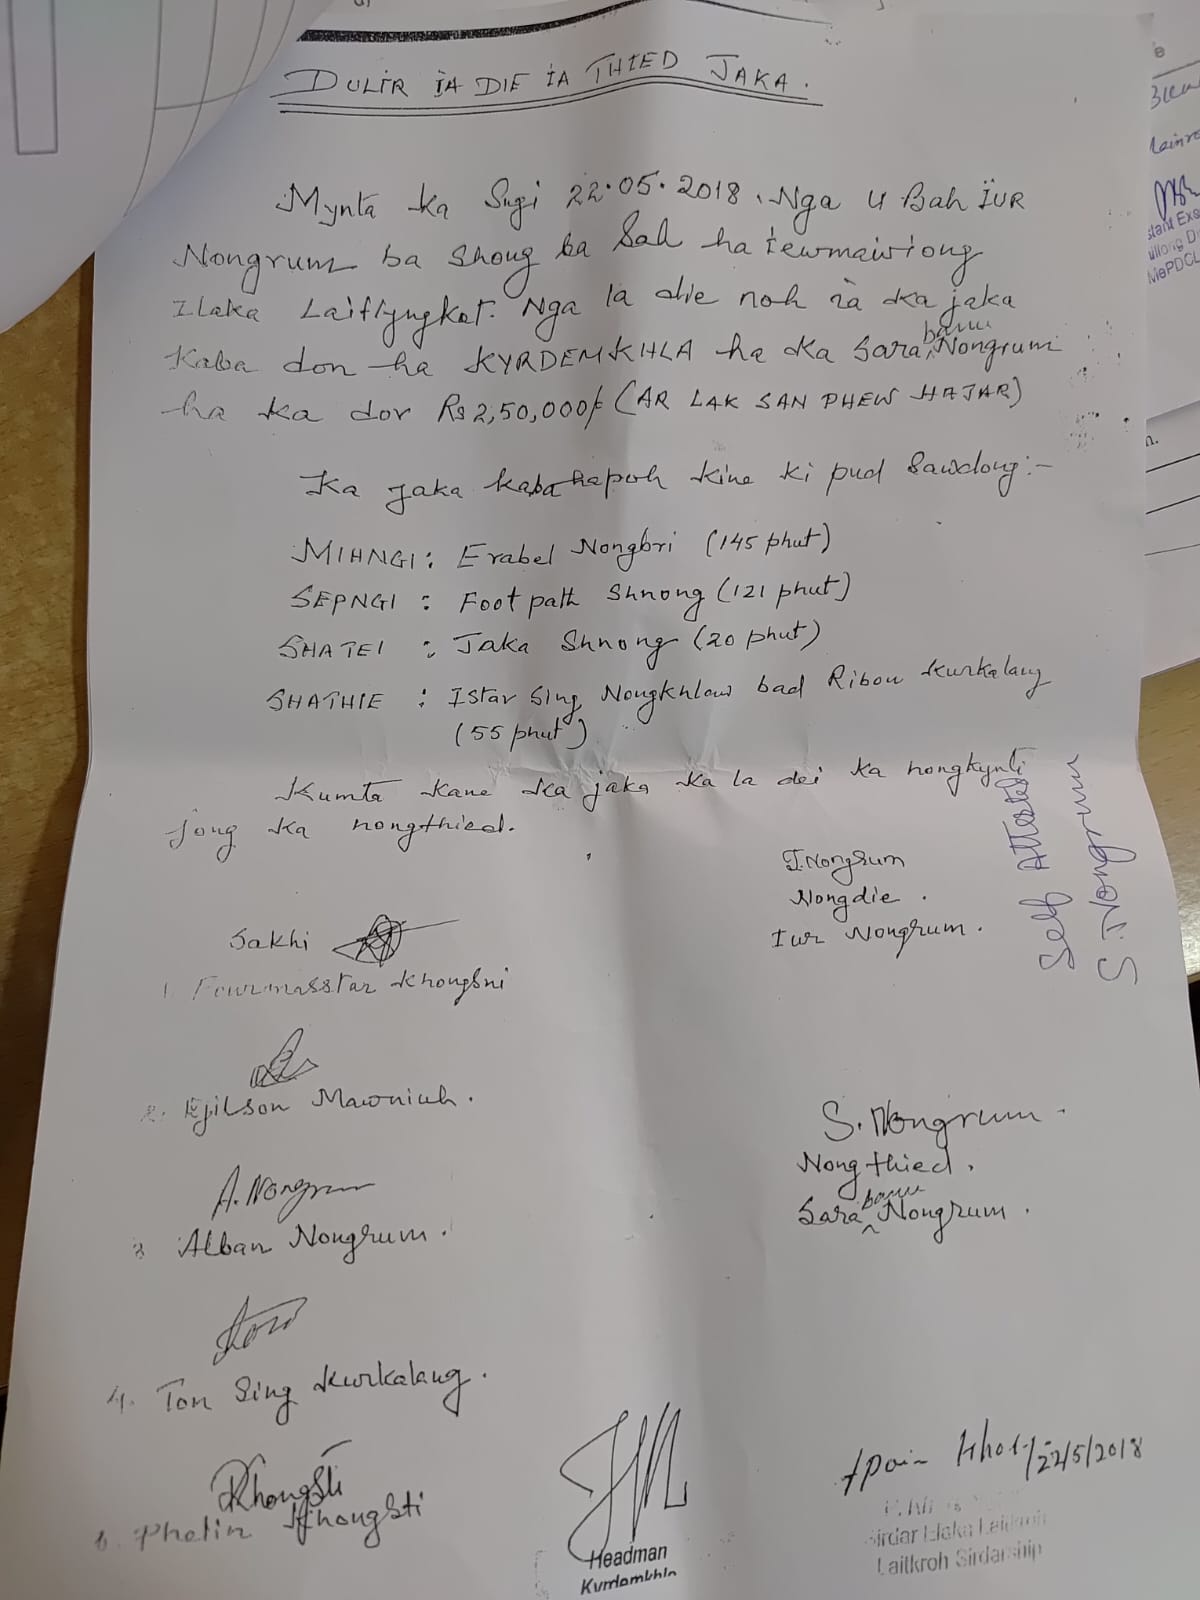 DULIR ÏA DIE ÏA THIED JAKA.
Mynta ka Sngi 22.05.2018. Nga U Bah ÏUR
Nongrum ba shong ba Sah ha ïewmawïong
Ilaka Laitlyngkot. Nga la die noh ïa ka jaka
kaba don ha KYRDEMKHLA ha ka Sara banu Nongrum
ha ka dor Rs 2,50,000/- (AR LAK SAN PHEW HAJAR)
Ka jaka kaba hapoh kine ki pud Sawdong:-
MIHNGI : Erabel Nongbri (145 phut)
SEPNGI : Foot path Shnong (121 phut)
SHATEI : Jaka Shnong (20 phut)
SHATHIE : Istar Sing Nongkhlaw bad Ribon Kurkalang
(55 phut)
Kumta kane ka jaka ka la dei ka hongkynti
jong ka nongthied.
Self Attested
S. Nongrum
I. Nongrum
Nongdie.
Iur Nongrum.
Sakhi
1. Fourmasstar Khongsni
2. Ejilson Mawniuh.
S. Nongrum
Nongthied.
Sara banu Nongrum.
A. Nongrum
3 Alban Nongrum.
4. Ton Sing Kurkalang.
Khongsti
Phelin Khongsti
Headman
Kyrdemkhla
22/5/2018
Sirdar Ilaka
Laitkroh Sirdarship